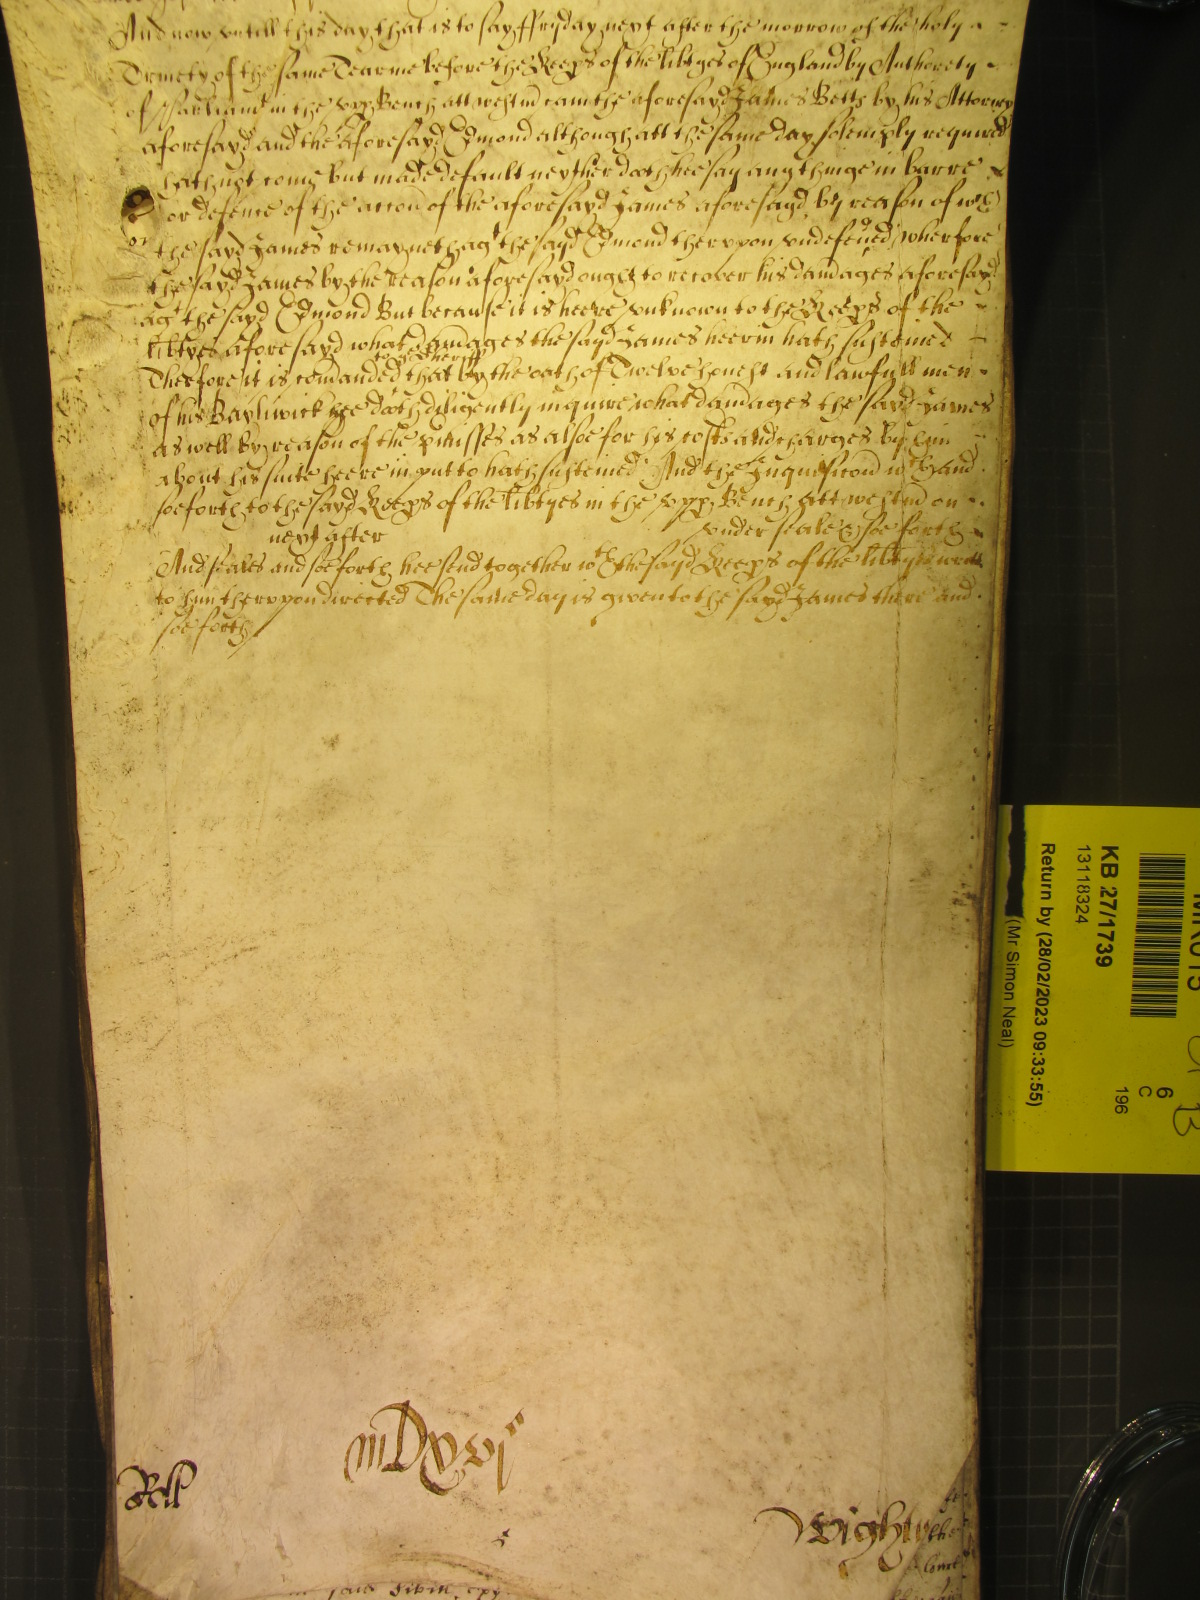 And now untill this day that is to say ffryday next after the morrow of the holy
Trinety of the same Tearme before the Keeps of the libtyes of England by Authorety
of Parliamt in the upp Bench att westm cam the aforesayd James Betts by his Attorney
aforesayd and the aforesayd Edmond although att the same day solemply required
hath not come but made default neyther doth hee say any thinge in barre
or defence of the accon of the aforesayd James aforesayd by reason of wch
the sayd James remayneth agt the sayd Edmond therupon undefended wherfore
the sayd James by the reason aforesayd ought to recover his damages aforesayd
agt the sayd Edmond But because it is heere unknown to the Keeps of the
libtyes aforesayd what damages the sayd James heerin hath susteined
Therefore it is comanded the Sheriff that by the oath of Twelve honest and lawfull men
of his Bayliwick hee doth diligently inquire what damages the sayd James
as well by reason of the pmisses as alsoe for his costs and charges by him
about his suite heere in put to hath susteined And the Inquisicon wch and
soe forth to the sayd Keeps of the libtyes in the upp Bench att westm on
next after under seale & soe forth
And seales and soe forth hee send together wth the sayd Keeps of the libtyes writt
to him therupon directed The same day is given to the sayd James there and
soe forth
Rell
mDxvj
Wightw
the
MR015
KB 27/1739
13118324
Return by (28/02/2023 09:33:55)
(Mr Simon Neal)
6
C
196